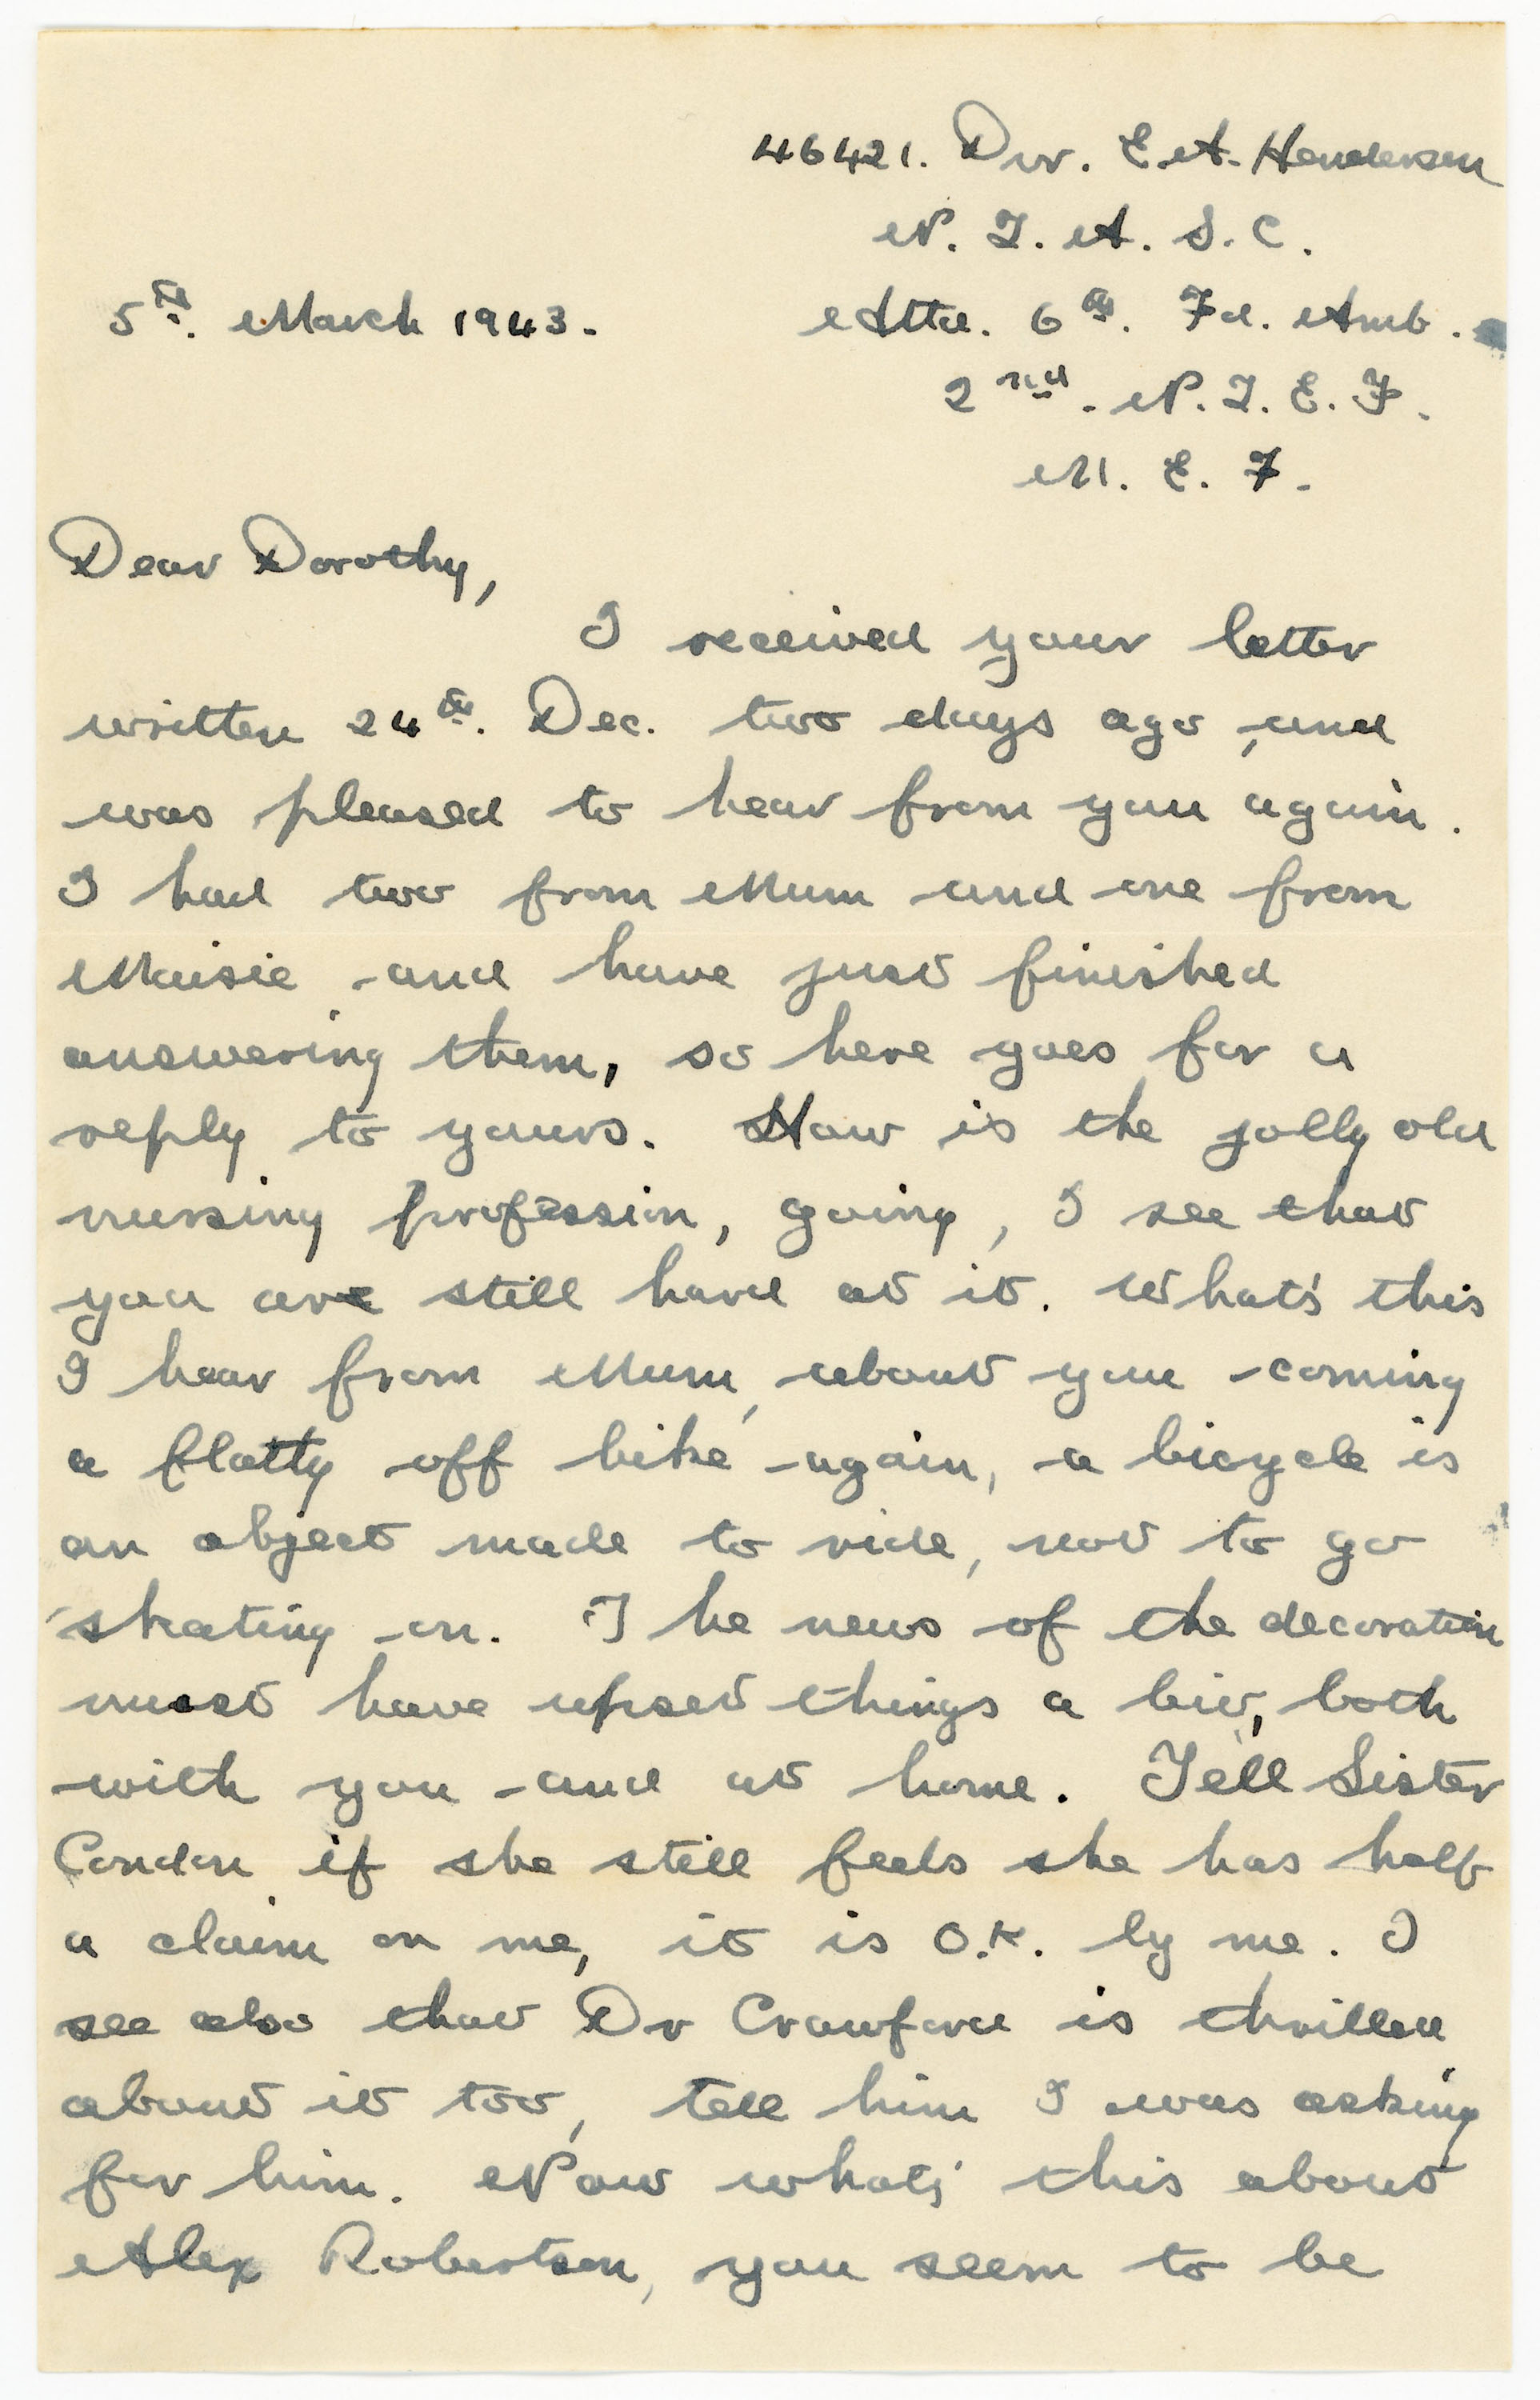 46421. Dvr. E.A. Henderson
N. Z. A. S. C.
5th. March 1943. Attd. 6th. Fd. Amb.
2nd. N. Z. E. F.
M. E. F.
Dear Dorothy,
I received your letter
written 24th. Dec. two days ago, and
was pleased to hear from you again.
I had two from Mum and one from
Maisie and have just finished
answering them, so here goes for a
reply to yours. How is the jolly old
nursing profession, going, I see that
you are still hard at it. What's this
I hear from Mum, about you coming
a flatty off bike again, a bicycle is
an object made to ride, not to go
skating on. The news of the decoration
must have upset things a bit, both
with you and at home. Tell Sister
Condon if she still feels she has half
a claim on me, it is O.K. by me. I
see also that Dr Crawford is thrilled
about it too, tell him I was asking
for him. Now what's this about
Alex Robertson, you seem to be